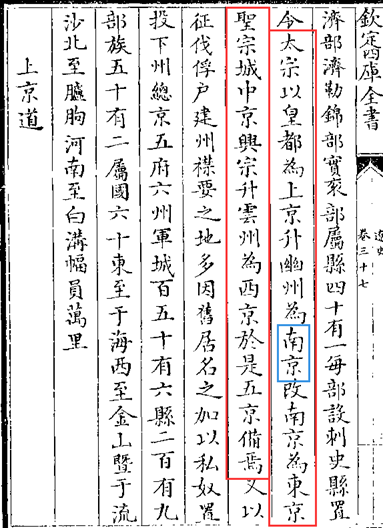 欽定四庫全書
遼史
卷三十七
濟部濟勒錦部實衮部屬縣四十有一每部設刺史縣置
令太宗以皇都為上京升幽州為南京改南京為東京
聖宗城中京興宗升雲州為西京於是五京備焉又以
征伐俘户建州襟要之地多因舊居名之加以私奴置
投下州總京五府六州軍城百五十有六縣二百有九
部族五十有二屬國六十東至于海西至金山暨于流
沙北至臚朐河南至白溝幅員萬里
上京道